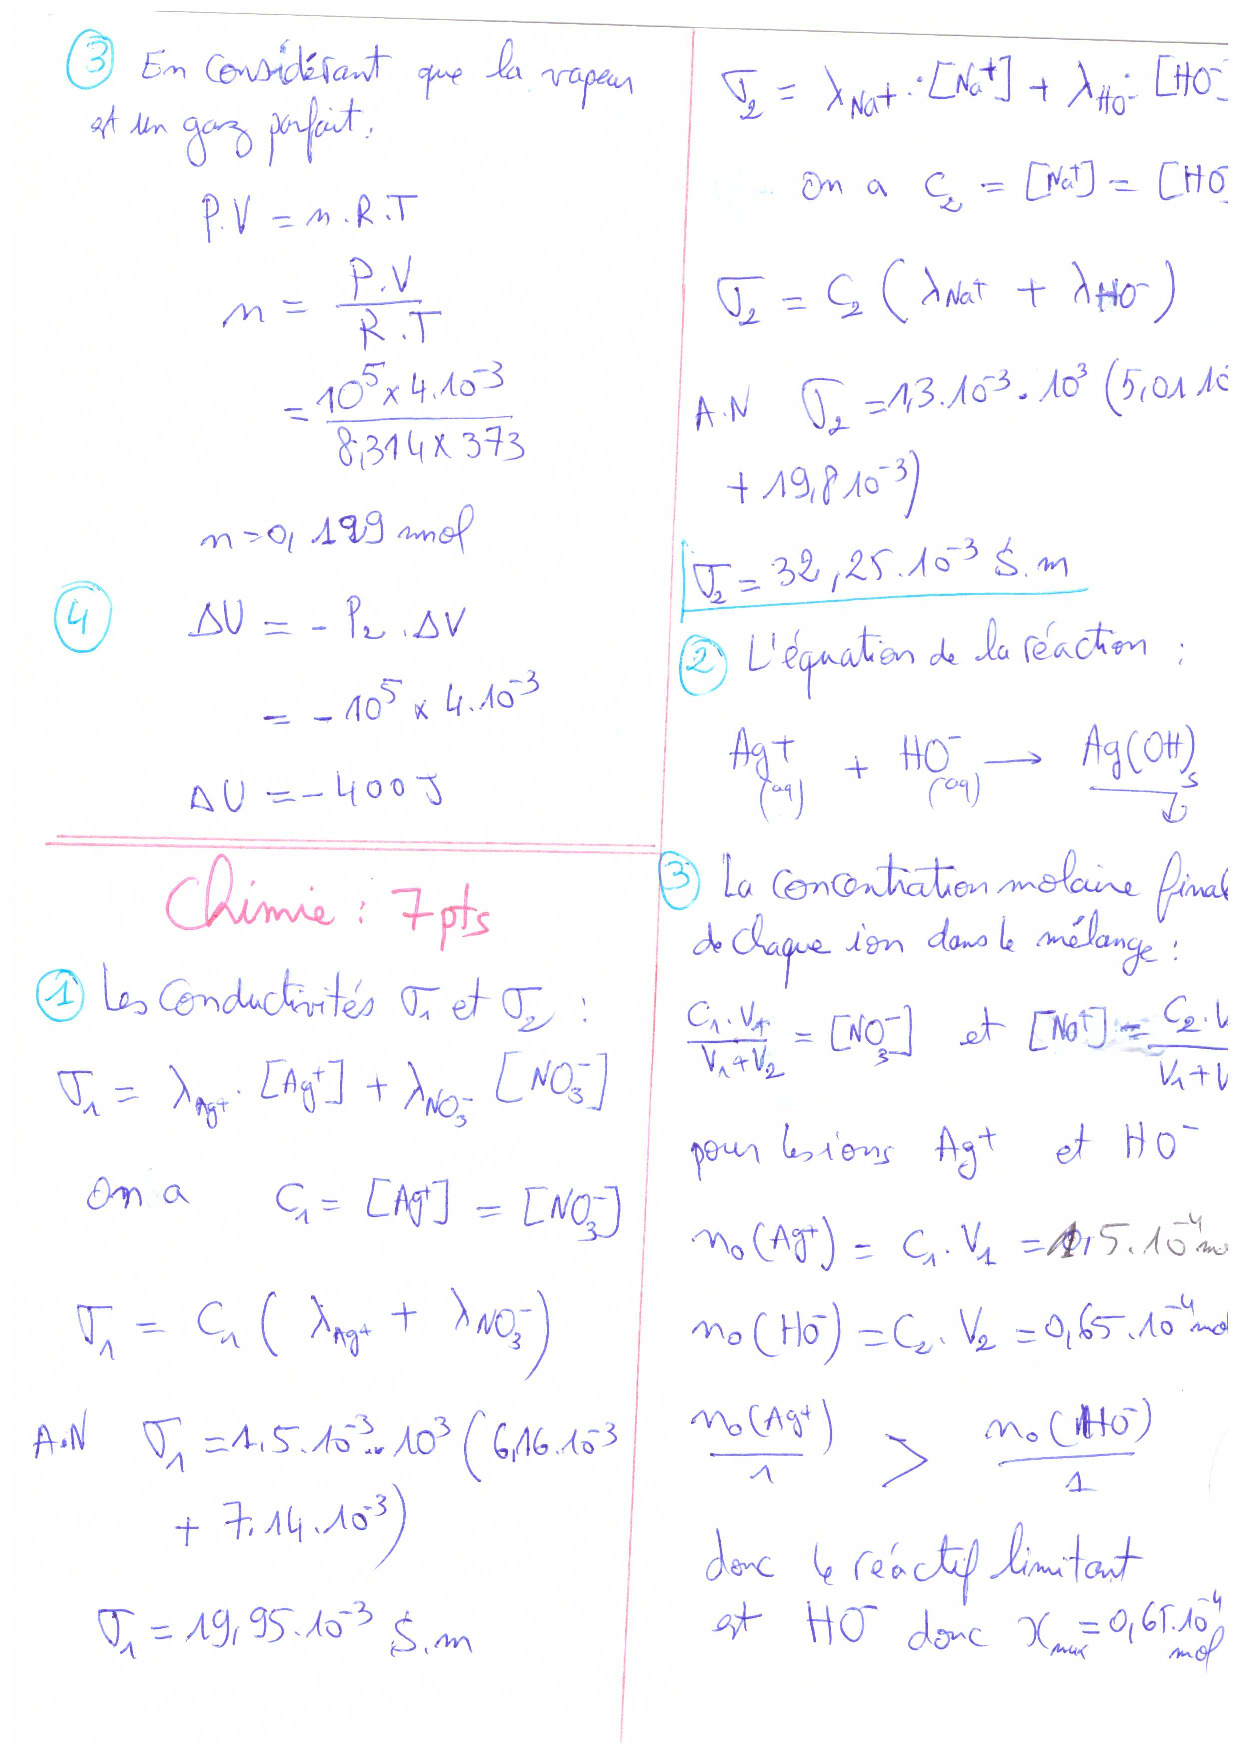 ③ En considérant que la vapeur
est un gaz parfait.
P.V = n.R.T
n = P.V / R.T
= 10⁵ x 4.10⁻³ / 8,314 x 373
n = 0,129 mol
④ ΔU = - P₂ . ΔV
= - 10⁵ x 4.10⁻³
ΔU = - 400 J
Chimie : 7 pts
① Les conductivités σ₁ et σ₂ :
σ₁ = λAg⁺ . [Ag⁺] + λNO₃⁻ [NO₃⁻]
on a C₁ = [Ag⁺] = [NO₃⁻]
σ₁ = C₁ ( λAg⁺ + λNO₃⁻ )
A.N σ₁ = 1,5.10⁻³.10³ ( 6,16.10⁻³
+ 7,14.10⁻³ )
σ₁ = 19,95.10⁻³ S.m
σ₂ = λNa⁺ . [Na⁺] + λHO⁻ . [HO⁻
on a C₂ = [Na⁺] = [HO
σ₂ = C₂ ( λNa⁺ + λHO⁻ )
A.N σ₂ = 1,3.10⁻³.10³ (5,01 10
+ 19,8 10⁻³)
σ₂ = 32,25.10⁻³ S.m
② L'équation de la réaction :
Ag⁺(aq) + HO⁻(aq) → Ag(OH)s ↓
③ La concentration molaire final
de chaque ion dans le mélange :
C₁.V₁ / V₁+V₂ = [NO₃⁻] et [Na⁺] = C₂.V / V₁+V
pour les ions Ag⁺ et HO⁻
n₀(Ag⁺) = C₁.V₁ = 1,5.10⁻⁴ mo
n₀(HO⁻) = C₂.V₂ = 0,65.10⁻⁴ mol
n₀(Ag⁺) / 1 > n₀(HO⁻) / 1
donc le réactif limitant
est HO⁻ donc xmax = 0,65.10⁻⁴ mol